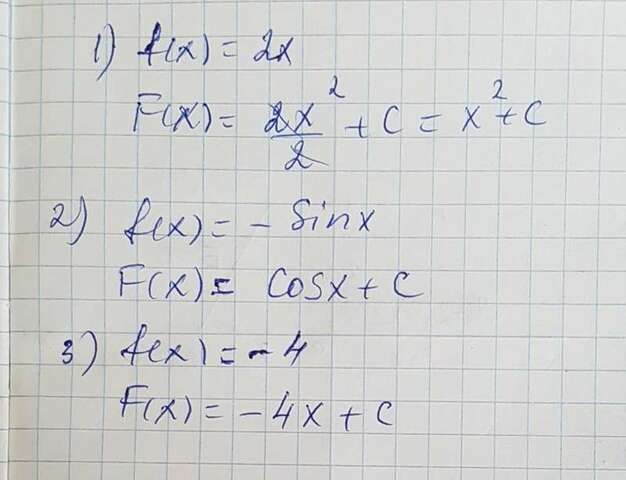 1) f(x) = 2x
F(x) = 2x²/2 + C = x² + C
2) f(x) = - Sinx
F(x) = Cosx + C
3) f(x) = - 4
F(x) = - 4x + C